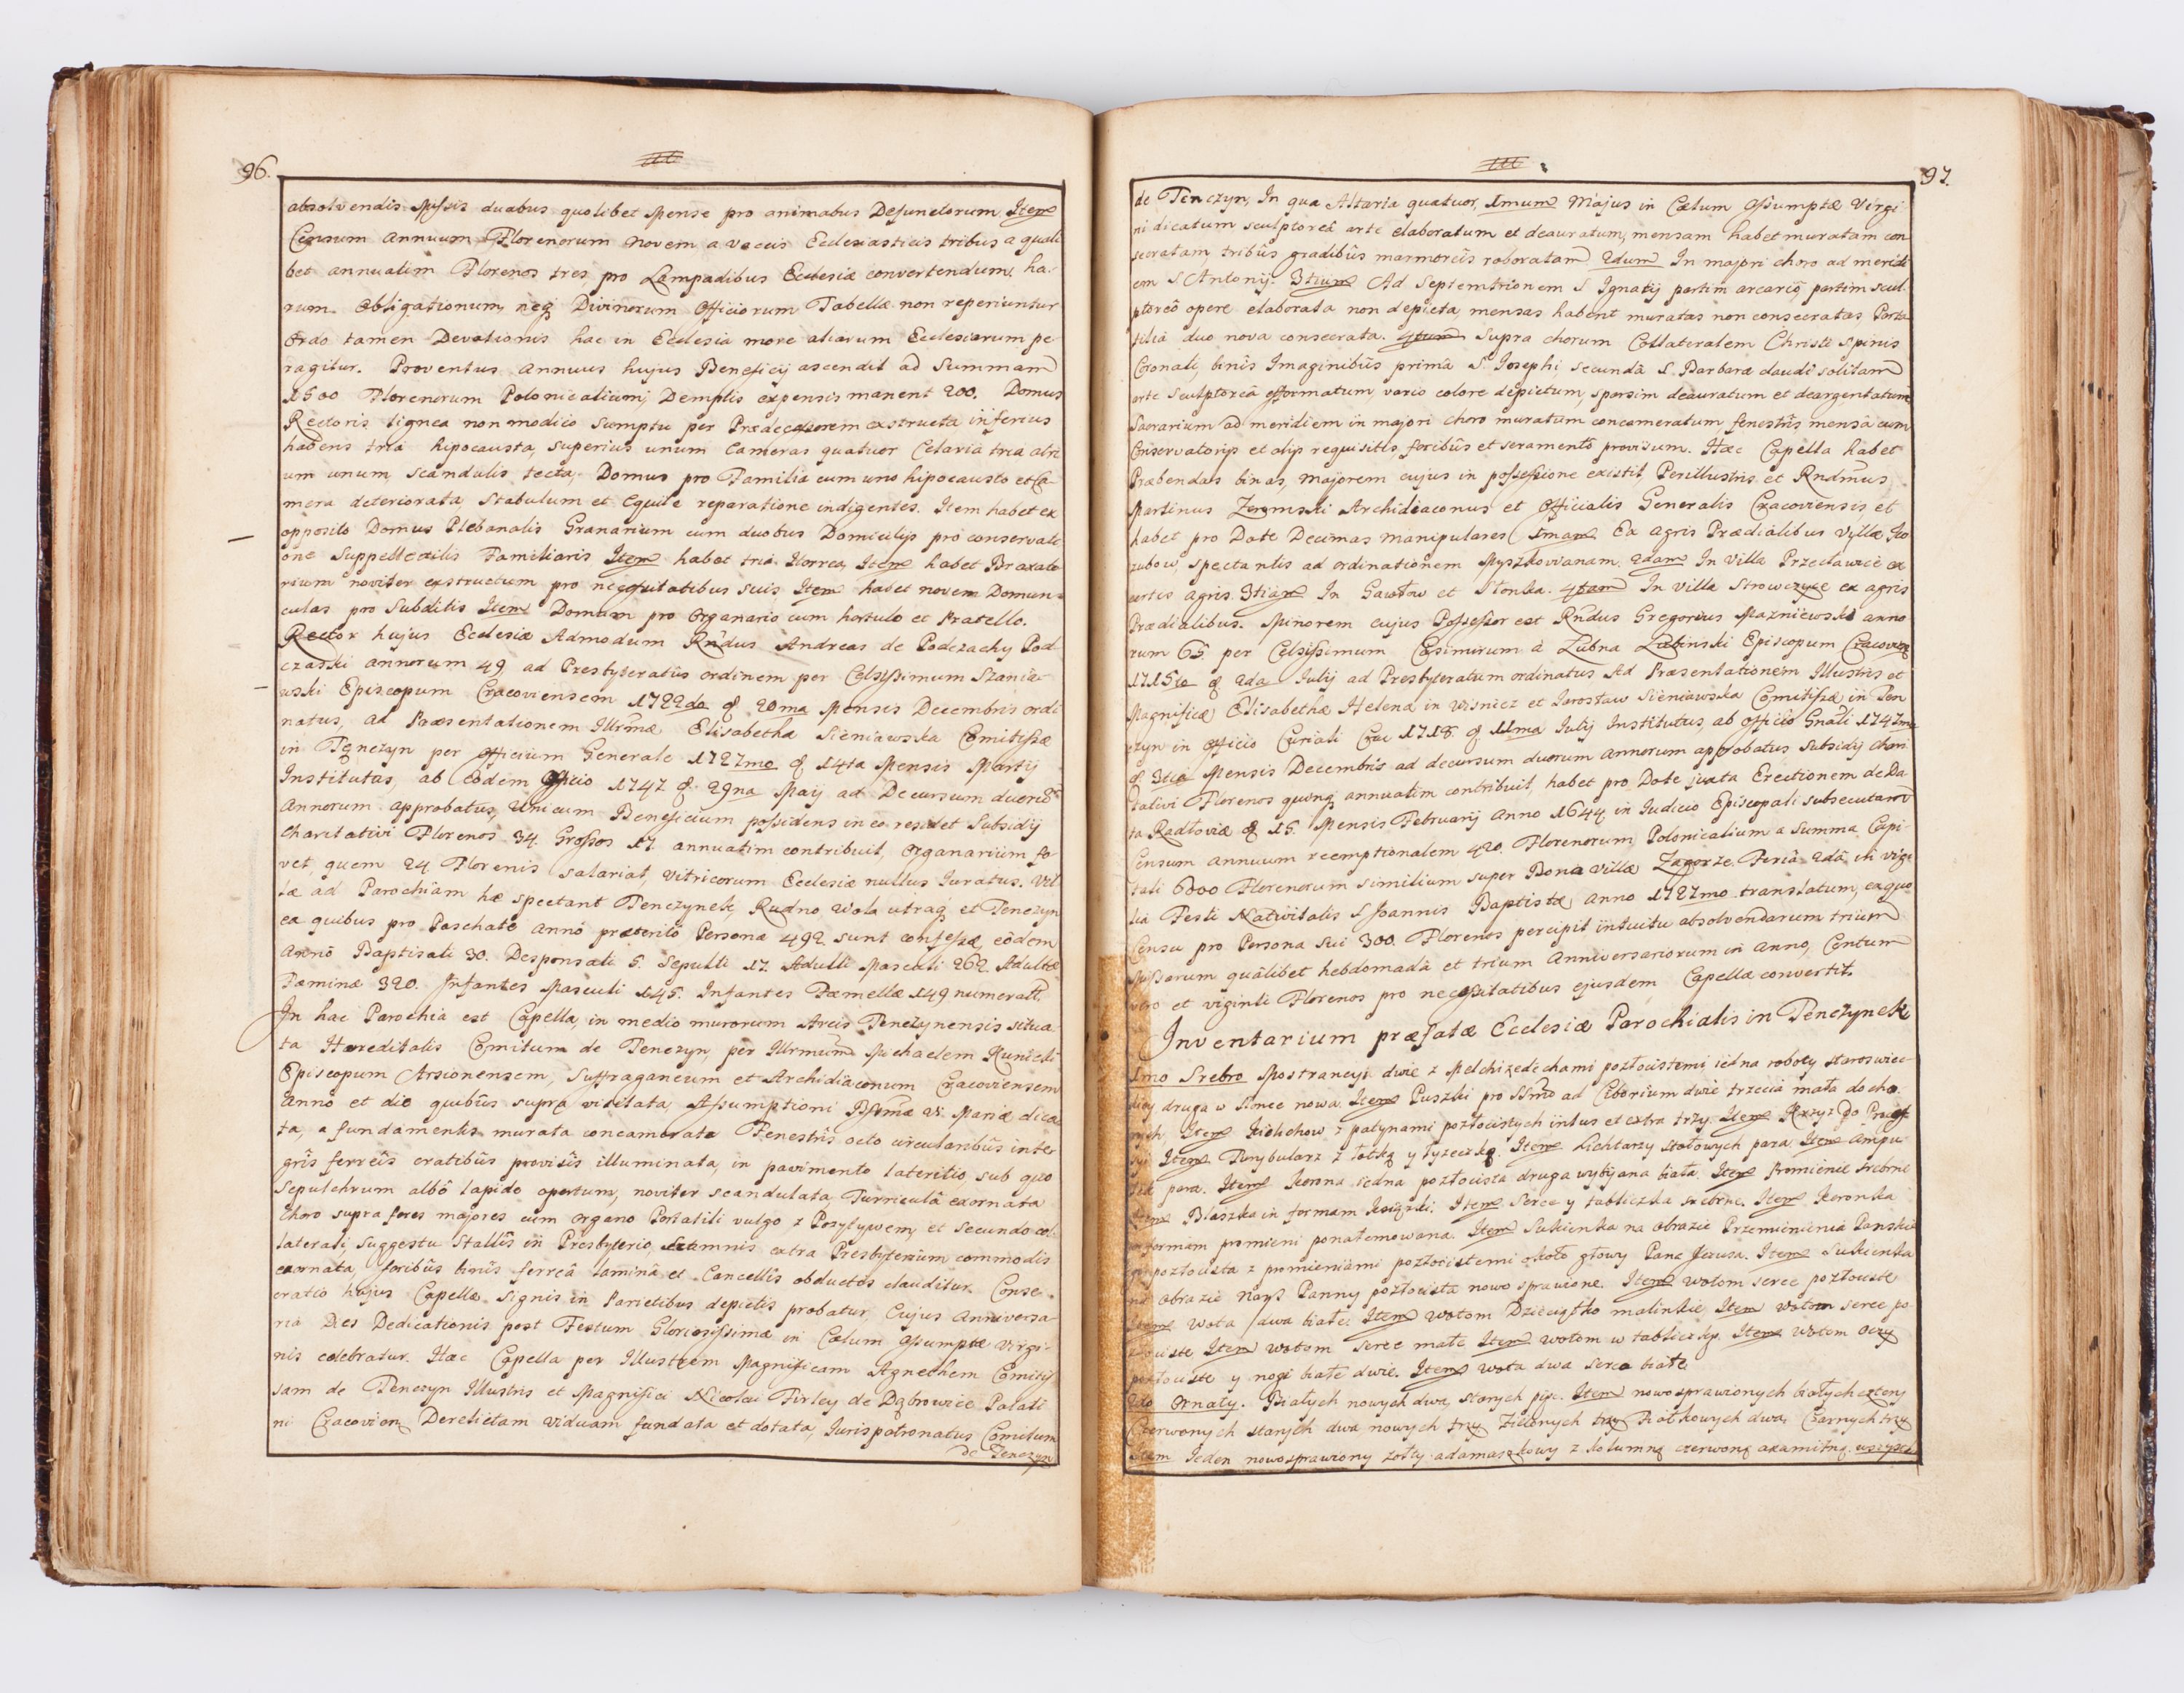 96.
absolvendis Missis duabus quolibet Mense pro animabus Defunctorum Item
Censum annuum Florenorum novem a vaccis Ecclesiasticis tribus a quali
bet annuatim Florenos tres, pro Lampadibus Ecclesiæ convertendum, ha-
rum Obligationum, neq Divinorum Officiorum Tabellæ non reperiuntur
Ordo tamen Devotionis hac in Ecclesia more aliarum Ecclesiarum pe
ragitur. Proventus annuus hujus Beneficij ascendit ad Summam
1500 Florenorum Polonicalium, Demptis expensis manent 200. Domus
Rectoris lignea non modico Sumptu per Prædecessorem exstructa inferius
habens tria hipocausta, superius unum Cameras quatuor Celaria tria atri
um unum, scandulis tecta. Domus pro Familia cum uno hipocausto et Ca-
mera deteriorata, Stabulum et Equile reparatione indigentes. Item habet ex
opposito Domus Plebanalis Granarium cum duobus Domicilijs pro conservati
one Suppellectilis Familiaris Item habet tria Horrea, Item habet Braxato
rium noviter exstructum pro necessitatibus suis Item habet novem Domun-
culas pro Subditis Item Domum pro Organario cum hortulo et Pratello.
Rector hujus Ecclesiæ Admodum Rndus Andreas de Podczachy Pod
czaski annorum 49 ad Presbyteratûs ordinem per Celsissimum Szania-
wski Episcopum Cracoviensem 1722do d 20ma Mensis Decembris ordi
natus, ad Præsentationem Illrmæ Elisabethæ Sieniawska Comitissæ
in Tenczyn per Officium Generale 1727mo d 14ta Mensis Martij
Institutus, ab eodem Officio 1747 d 29na Maij ad Decursum duorũ
Annorum approbatus, Unicum Beneficium possidens in eo residet Subsidij
Charitativi Florenos 34. Grossos 17. annuatim contribuit, Organarium fo-
vet, quem 24 Florenis salariat, Vitricorum Ecclesiæ nullus Iuratus. Vil
læ ad Parochiam hæ spectant Tenczynek, Rudno, Wola utraq et Tenczyn
ex quibus pro Paschate annô præteritô Personæ 492 sunt confessæ, eôdem
Annô Baptisati 30. Desponsati 5. Sepulti 17. Adulti Masculi 262 Adultæ
Fæminæ 320. Infantes Masculi 145. Infantes Fæmellæ 149 numerati.
In hac Parochia est Capella, in medio murorum Arcis Tenczynensis situa
ta Hæreditatis Comitum de Tenczyn, per Illrmum Michaelem Kunicki
Episcopum Arsionensem, Suffraganeum et Archidiaconum Cracoviensem
Annô et die quibûs supra visitata, Assumptioni Bssmæ Vi. Mariæ dica
ta, a fundamentis murata concamerata Fenestrîs octo circularibûs inte-
grîs ferreîs cratibûs provisîs illuminata, in pavimento lateritio, sub quo
Sepulchrum albô lapide opertum, noviter scandulata, Turriculâ exornata
Choro supra fores majores cum organo Portatili vulgo z Pozytywem, et Secundo col
laterali, Suggestu Stallîs in Presbyterio, Scamnis extra Presbyterium commodis
exornata, foribûs binîs ferreâ laminâ et Cancellîs obductis clauditur. Conse-
cratio hujus Capellæ signis in Parietibus depictis probatur, Cujus Anniversa-
ria Dies Dedicationis post Festum Gloriosissimæ in Cælum Assumptæ Virgi-
nis celebratur. Hæc Capella per Illustrem Magnificam Agnethem Comitis
sam de Tenczyn Illustris et Magnifici Nicolai Firley de Dąbrowice Palati
ni Cracovien Derelictam viduam fundata et dotata, Iurispatronatus Comitum
de Tenczyn
97.
de Tenczyn, In qua Altaria quatuor, 1mum Majus in Cælum Assumptæ Virgi-
ni dicatum sculptoreâ arte elaboratum et deauratum, mensam habet muratam con
secratam tribûs gradibûs marmoreîs roboratam 2dum In majori choro ad meridi
em S Antonij. 3tium Ad Septemtrionem S Ignatij partim arcariô, partim scul-
ptoreô opere elaborata non depicta, mensas habent muratas non consecratas, Porta
tilia duo nova consecrata. 4tum Supra chorum Collateralem Christi Spinis
Coronati, binîs Imaginibûs primâ S. Josephi secundâ S. Barbaræ claudi solitam
arte Sculptoreâ efformatum, vario colore depictum, sparsim deauratum et deargentatum
Sacrarium ad meridiem in majori choro muratum concameratum, fenestrîs mensâ cum
Conservatorijs et alijs requisitis, foribûs et seramentô provisum. Hæc Capella habet
Præbendas binas, majorem cujus in possessione existit, Perillustris et Rndmus
Martinus Zeromski Archidiaconus et Officialis Generalis Cracoviensis et
habet pro Dote Decimas manipulares 1mam Ex agris Prædialibus Villæ Ko
zubow, spectantis ad ordinationem Myszkowianam. 2dam In Villa Przecławice ex
certis agris. 3tiam In Gawłow et Słonka. 4tam In villa Strowczyce ex agris
Prædialibus. Minorem cujus Possessor est Rndus Gregorius Mazniewski anno
rum 65 per Celsissimum Casimirum à Łubna Łubinski Episcopum Cracovien
1715to d 2da Julij ad Presbyteratum ordinatus Ad Præsentationem Illustris et
Magnificæ Elisabethæ Helenæ in Wisnicz et Jarosław Sieniawska Comitissæ in Ten
czyn in Officio Curiali Crac 1718 d 11ma Julij Institutus, ab officio Gnãli 1747mo
d 3tia Mensis Decembris ad decursum duorum annorum approbatus Subsidij Chari
tativi Florenos quinq annuatim contribuit, habet pro Dote juxta Erectionem de Da
ta Radłoviæ d 15 Mensis Februarij Anno 1644 in Iudicio Episcopali subsecutam
Censum annuum reemptionalem 420 Florenorum Polonicalium a Summa Capi-
tali 6000 Florenorum similium super Bona Villæ Zagorze Feriâ 2dâ in vigi
lia Festi Nativitatis S Joannis Baptistæ, anno 1727mo translatum, ex quo
Censu pro Persona sui 300. Florenos percipit intuitu absolvendarum trium
Missarum quâlibet hebdomadâ et trium Anniversariorum in anno, Centum
vero et viginti Florenos pro necessitatibus ejusdem Capellæ convertit.
Inventarium præfatæ Ecclesiæ Parochialis in Tenczynek
1mo Srebro Mostrancyi dwie z Melchizedechami pozłocistemi, iedna roboty staroswiec-
kiey druga w słonce nowa. Item Puszki pro SSmo ad Ciborium dwie trzecia mała do cho
rych. Item Kielichow z patynami pozłocistych intus et extra trzy. Item Krzyz do Proces
syi Item Turybularz z łotką y łyzeczką. Item Lichtarzy stołowych para Item Ampu
łek para. Item Korona iedna pozłocista druga wybijana biała. Item Promienie srebrne
Item Blaszka in formam książki. Item Serce y tabliczka srebrne. Item Koronka
in formam promieni ponałemowana. Item Sukienka na Obrazie Przemienienia Panskie
go pozłocista z promieniami pozłocistemi około głowy Pana Jezusa. Item Sukienka
na Obrazie Nays Panny pozłocista nowo sprawione. Item Wotom serce pozłociste
Item Wota dwa białe. Item Wotom Dzieciątko malinkie Item Wotom serce po
złociste Item Wotom serce małe Item Wotom w tabliczkę. Item Wotom Oczy
pozłociste y nogi białe dwie. Item Wota dwa serca białe
2do Ornaty. Białych nowych dwa, starych pięc. Item nowosprawionych białych cztery
Czerwonych starych dwa nowych trzy Zielonych trzy Fiałkowych dwa, Czarnych trzy
Item Ieden nowosprawiony zołty adamaszkowy z kolumną czerwoną axamitną. wszyst